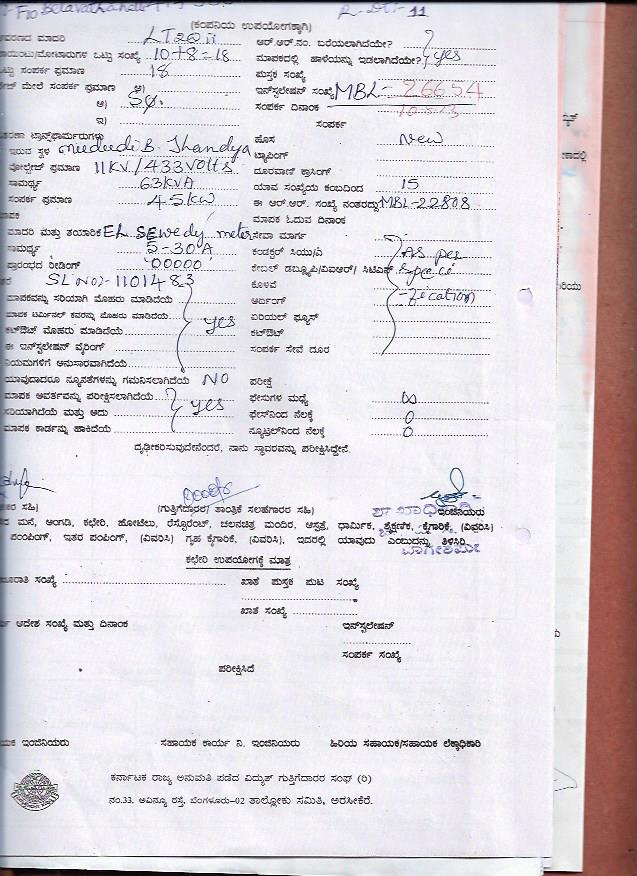 F/o Belavathahalli
R-DTI-11
(ಕಂಪನಿಯ ಉಪಯೋಗಕ್ಕಾಗಿ)
ಮಾದರಿ LT2(a)ii ಆರ್.ಆರ್.ನಂ. ಬರೆಯಲಾಗಿದೆಯೇ?
ಒಟ್ಟು ಸಂಖ್ಯೆ 10+8=18 ಮಾಪಕದಲ್ಲಿ ಹಾಳೆಯನ್ನು ಇಡಲಾಗಿದೆಯೇ? yes
ಒಟ್ಟು ಸಂಪರ್ಕ ಪ್ರಮಾಣ 18 ಪುಸ್ತಕ ಸಂಖ್ಯೆ
ಮೇಲೆ ಸಂಪರ್ಕ ಪ್ರಮಾಣ ಇನ್‌ಸ್ಟಲೇಷನ್ ಸಂಖ್ಯೆ MBL-26654
ಆ) ಸಂಪರ್ಕ ದಿನಾಂಕ
ಇ) ಸಂಪರ್ಕ
ಟ್ರಾನ್ಸ್‌ಫಾರ್ಮರುಗಳು ಹೊಸ New
ಇರುವ ಸ್ಥಳ B. Thandya ಟ್ಯಾಪಿಂಗ್
ವೋಲ್ಟೇಜ್ ಪ್ರಮಾಣ 11KV/433volts ದೂರವಾಣಿ ಕ್ರಾಸಿಂಗ್
ಸಾಮರ್ಥ್ಯ 63KVA ಯಾವ ಸಂಖ್ಯೆಯ ಕಂಬದಿಂದ 15
ಸಂಪರ್ಕ ಪ್ರಮಾಣ 45KW ಈ ಆರ್.ಆರ್. ಸಂಖ್ಯೆ ನಂತರದ್ದು MBL-22808
ಮಾಪಕ ಓದುವ ದಿನಾಂಕ
ಮಾದರಿ ಮತ್ತು ತಯಾರಿಕೆ EL SEwedy meter ಸೇವಾ ಮಾರ್ಗ
ಸಾಮರ್ಥ್ಯ 5-30A ಕಂಡಕ್ಟರ್ ಸಿಯು/ಎ As per
ಪ್ರಾರಂಭದ ರೀಡಿಂಗ್ '00000' ಕೇಬಲ್ ಡಬ್ಲ್ಯೂಪಿ/ವಿಐಆರ್/ ಸಿಟಿಎಸ್ Speci
SL No:-1101483 ಕೊಳವೆ
ಮಾಪಕವನ್ನು ಸರಿಯಾಗಿ ಮೊಹರು ಮಾಡಿದೆಯೆ ಅರ್ಥಿಂಗ್ -fication
ಮಾಪಕ ಟರ್ಮಿನಲ್ ಕವರನ್ನು ಮೊಹರು ಮಾಡಿದೆಯೆ yes ಏರಿಯಲ್ ಫ್ಯೂಸ್
ಕಟ್ಔಟ್ ಮೊಹರು ಮಾಡಿದೆಯೆ ಕಟ್ಔಟ್
ಈ ಇನ್‌ಸ್ಟಲೇಷನ್ ವೈರಿಂಗ್ ಸಂಪರ್ಕ ಸೇವೆ ದೂರ
ನಿಯಮಗಳಿಗೆ ಅನುಸಾರವಾಗಿದೆಯೆ
ಯಾವುದಾದರೂ ನ್ಯೂನತೆಗಳನ್ನು ಗಮನಿಸಲಾಗಿದೆಯೆ NO ಪರೀಕ್ಷೆ
ಮಾಪಕ ಅವರ್ತವನ್ನು ಪರೀಕ್ಷಿಸಲಾಗಿದೆಯೆ yes ಫೇಸುಗಳ ಮಧ್ಯೆ ∞
ಸರಿಯಾಗಿದೆಯೆ ಮತ್ತು ಅದು ಫೇಸ್‌ನಿಂದ ನೆಲಕ್ಕೆ 0
ಮಾಪಕ ಕಾರ್ಡನ್ನು ಹಾಕಿದೆಯೆ ನ್ಯೂಟ್ರಲ್‌ನಿಂದ ನೆಲಕ್ಕೆ 0
ದೃಢೀಕರಿಸುವುದೇನೆಂದರೆ, ನಾನು ಸ್ಥಾವರವನ್ನು ಪರೀಕ್ಷಿಸಿದ್ದೇನೆ.
ಸಹಿ) (ಗುತ್ತಿಗೆದಾರರ/ ತಾಂತ್ರಿಕ ಸಲಹೆಗಾರರ ಸಹಿ) ಇಂಜಿನಿಯರು
ಮನೆ, ಅಂಗಡಿ, ಕಛೇರಿ, ಹೋಟೆಲು, ರೆಸ್ಟೊರೆಂಟ್, ಚಲನಚಿತ್ರ ಮಂದಿರ, ಆಸ್ಪತ್ರೆ, ಧಾರ್ಮಿಕ, ಶೈಕ್ಷಣಿಕ, ಕೈಗಾರಿಕೆ, (ವಿವರಿಸಿ)
ಪಂಪಿಂಗ್, ಇತರ ಪಂಪಿಂಗ್, (ವಿವರಿಸಿ) ಗೃಹ ಕೈಗಾರಿಕೆ, (ವಿವರಿಸಿ), ಇದರಲ್ಲಿ ಯಾವುದು ಎಂಬುದನ್ನು ತಿಳಿಸಿರಿ
ಕಛೇರಿ ಉಪಯೋಗಕ್ಕೆ ಮಾತ್ರ
ಸಂಖ್ಯೆ ಖಾತೆ ಪುಸ್ತಕ ಪುಟ ಸಂಖ್ಯೆ
ಖಾತೆ ಸಂಖ್ಯೆ
ಆದೇಶ ಸಂಖ್ಯೆ ಮತ್ತು ದಿನಾಂಕ ಇನ್‌ಸ್ಟಲೇಷನ್
ಸಂಪರ್ಕ ಸಂಖ್ಯೆ
ಪರೀಕ್ಷಿಸಿದೆ
ಇಂಜಿನಿಯರು ಸಹಾಯಕ ಕಾರ್ಯ ನಿ. ಇಂಜಿನಿಯರು ಹಿರಿಯ ಸಹಾಯಕ/ಸಹಾಯಕ ಲೆಕ್ಕಾಧಿಕಾರಿ
ಕರ್ನಾಟಕ ರಾಜ್ಯ ಅನುಮತಿ ಪಡೆದ ವಿದ್ಯುತ್ ಗುತ್ತಿಗೆದಾರರ ಸಂಘ (ರಿ)
ನಂ.33. ಅವಿನ್ಯೂ ರಸ್ತೆ, ಬೆಂಗಳೂರು-02 ತಾಲ್ಲೋಕು ಸಮಿತಿ, ಅರಸೀಕೆರೆ.